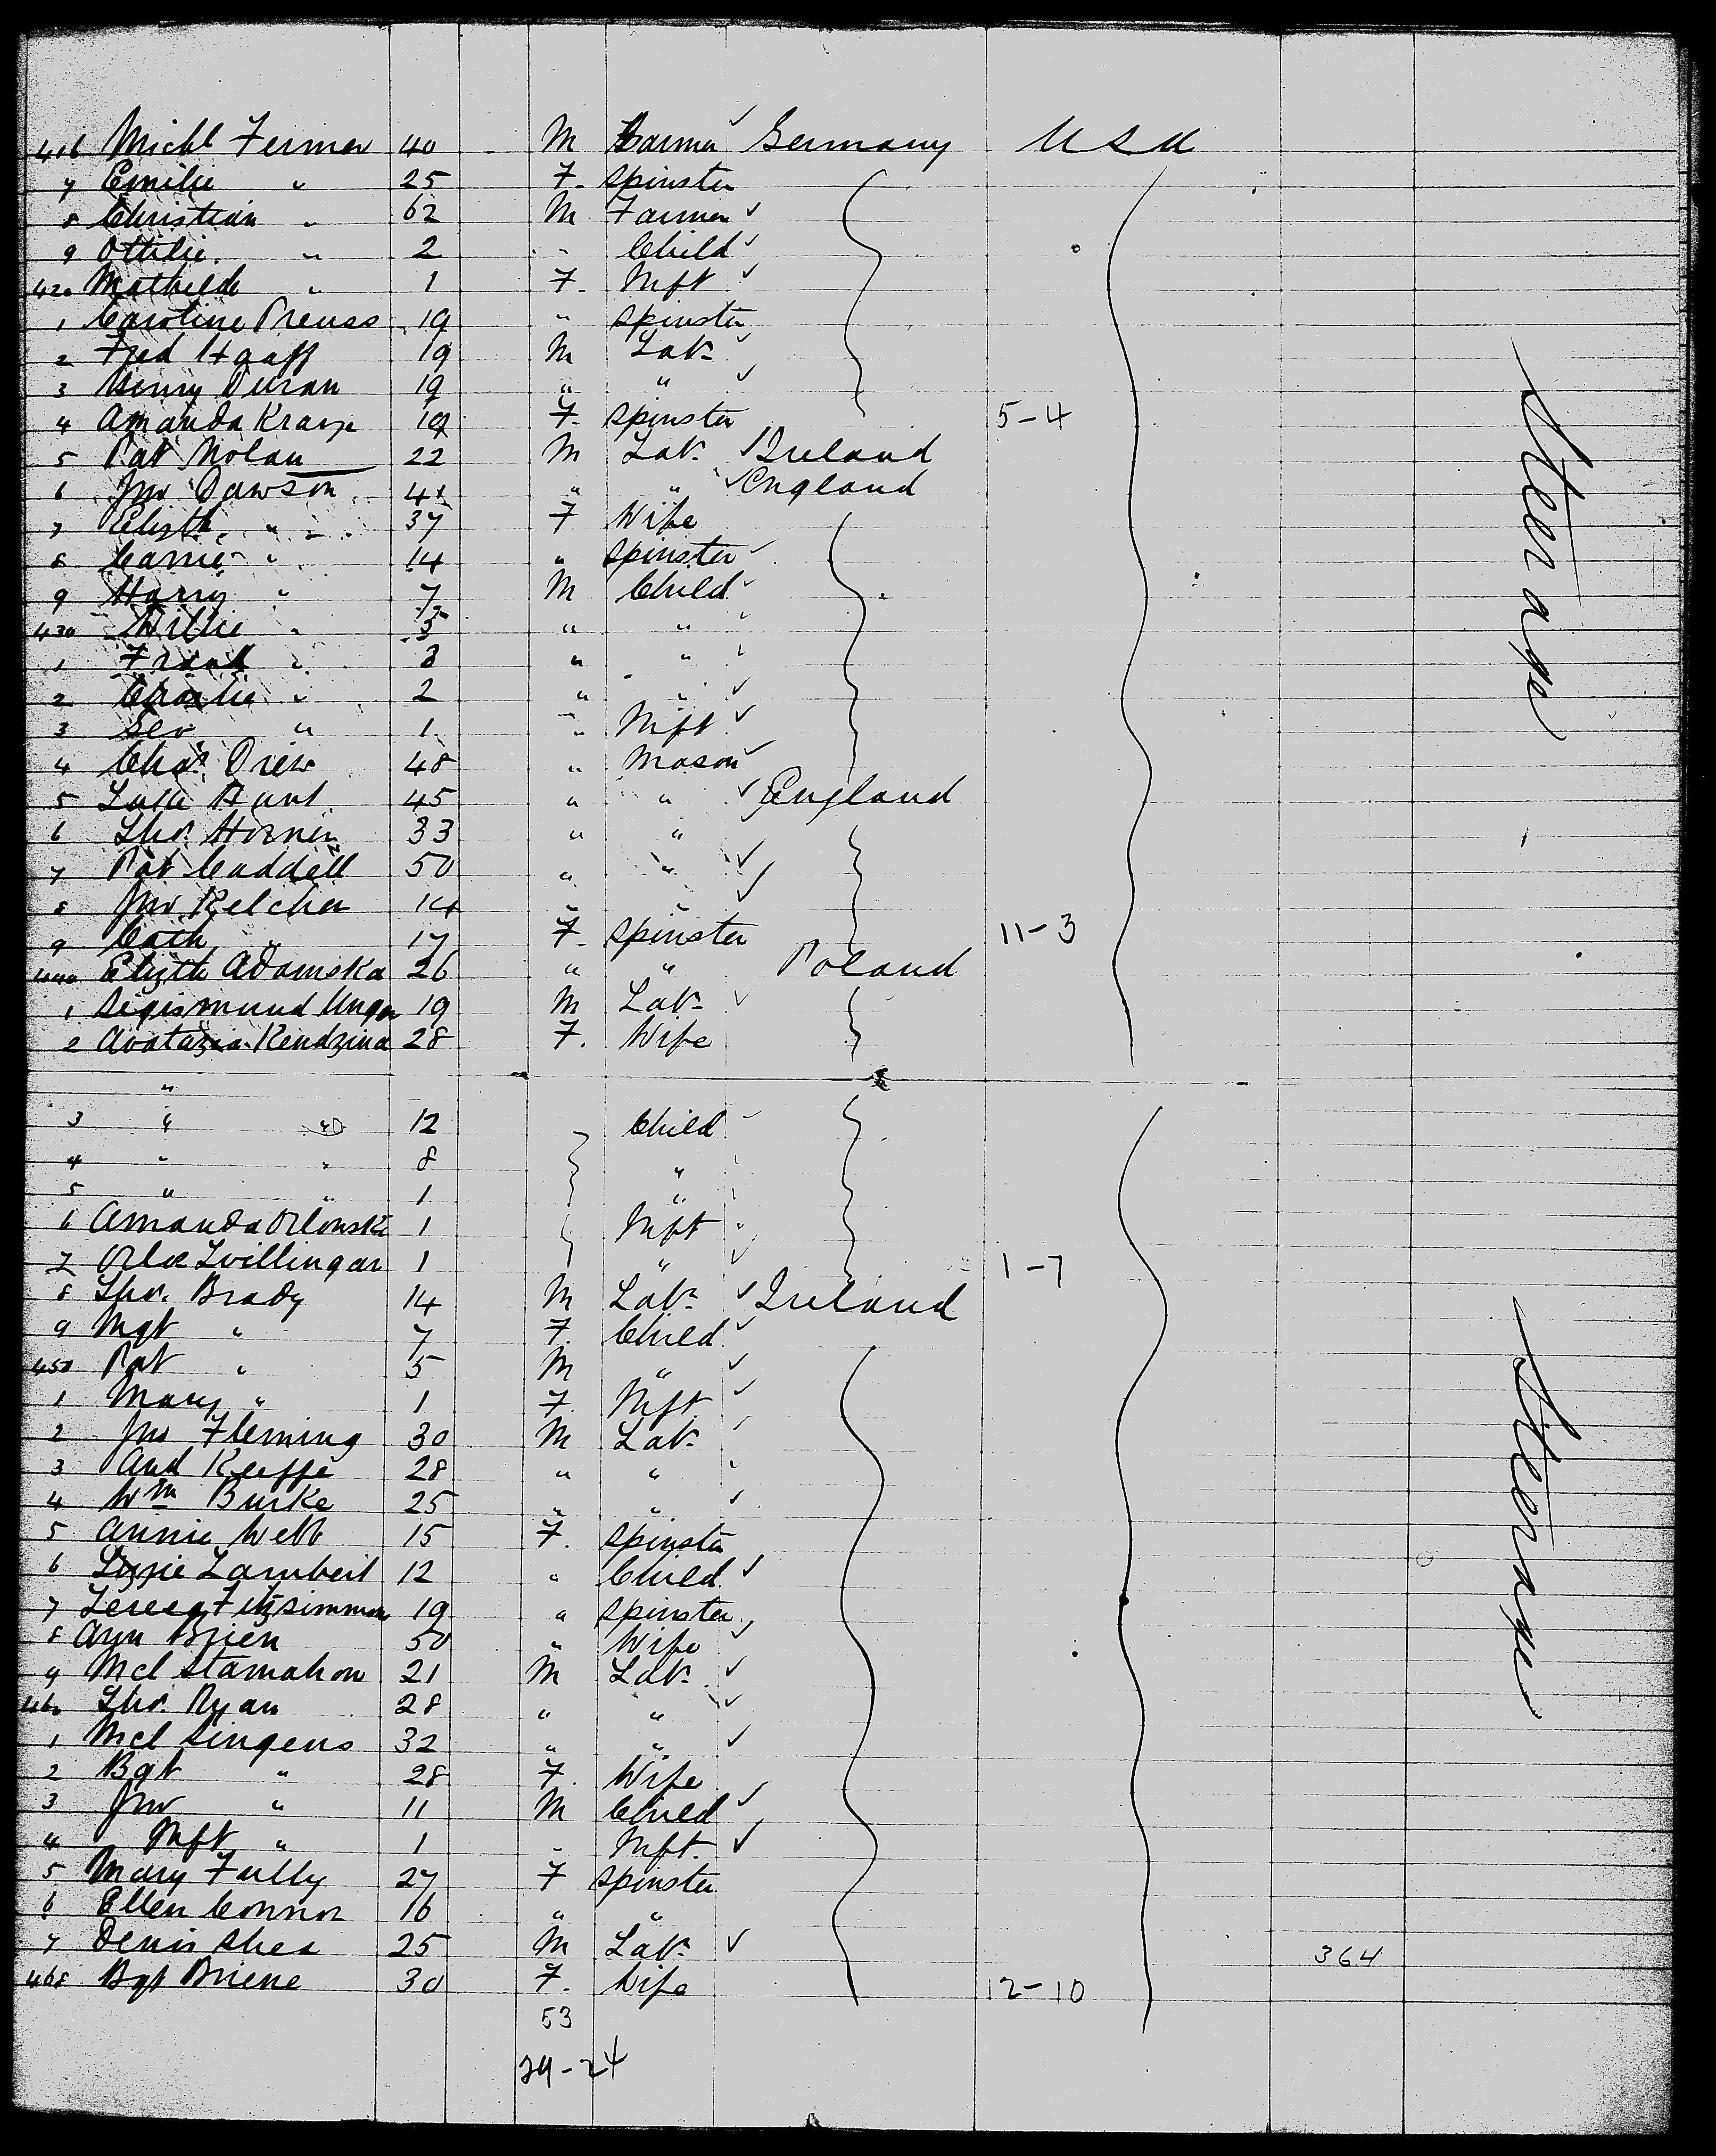 416 Michl Fermer 40 M Farmer ✓ Germany USA
7 Emilie " 25 F. Spinster
8 Christian " 62 M Farmer ✓
9 Ottilie. " 2 " Child ✓
420 Mathilde " 1 F. Inft ✓
1 Caroline Preuss 19 " Spinster
2 Fred Haaff 19 M Lab. ✓
3 Henry Duran 19 " " ✓
4 Amanda 19 F. Spinster 5-4
5 Pat Nolan 22 M Lab. ✓ Ireland
6 Jno Dawson 41 " " ✓ England
7 Elizth " 37 F Wife
8 Carrie " 14 " Spinster ✓
9 Harry " 7 M Child ✓
430 Willie " 5 " " ✓
1 Frank " 3 " " ✓
2 Charlie " 2 " " ✓
3 Geo " 1 " Inft ✓
4 Chas Drew 48 " Mason ✓
5 Hunt 45 " " ✓ England
6 Tho. 33 " "
7 Pat Caddell 50 " " ✓
8 Jno Kelcher 14 " " ✓
9 Cath " 17 F. Spinster 11-3
440 Elizth Adamska 26 " " Poland
1 Sigismund Unger 19 M Lab. ✓
2 Kendzina 28 F. Wife
"
3 " " 12 Child ✓
4 " " 8 "
5 " " 1 "
6 Amanda Orlonski 1 Inft
7 Zvillingar 1 " ✓ 1-7
8 Tho. Brady 14 M Lab. ✓ Ireland
9 Mgt " 7 F. Child ✓
450 Pat " 5 M " ✓
1 Mary " 1 F. Inft ✓
2 Jno Fleming 30 M Lab. ✓
3 And Keeffe 28 " " ✓
4 Wm Burke 25 " " ✓
5 Annie Webb 15 F. Spinster
6 Lizzie Lambert 12 " Child ✓
7 Teresa Fitzsimmons 19 " Spinster
8 Ann Brien 50 " Wife ✓
9 Mcl 21 M Lab. ✓
460 Tho. Ryan 28 " " ✓
1 Mcl Singens 32 " " ✓
2 Bgt " 28 F. Wife
3 Jno " 11 M Child ✓
4 Inft " 1 " Inft. ✓
5 Mary Fully 27 F Spinster
6 Ellen Connor 16 " "
7 Denis Shea 25 M Lab. ✓ 364
468 Bgt Briene 30 F. Wife 12-10
53
29-24
Steerage
Steerage